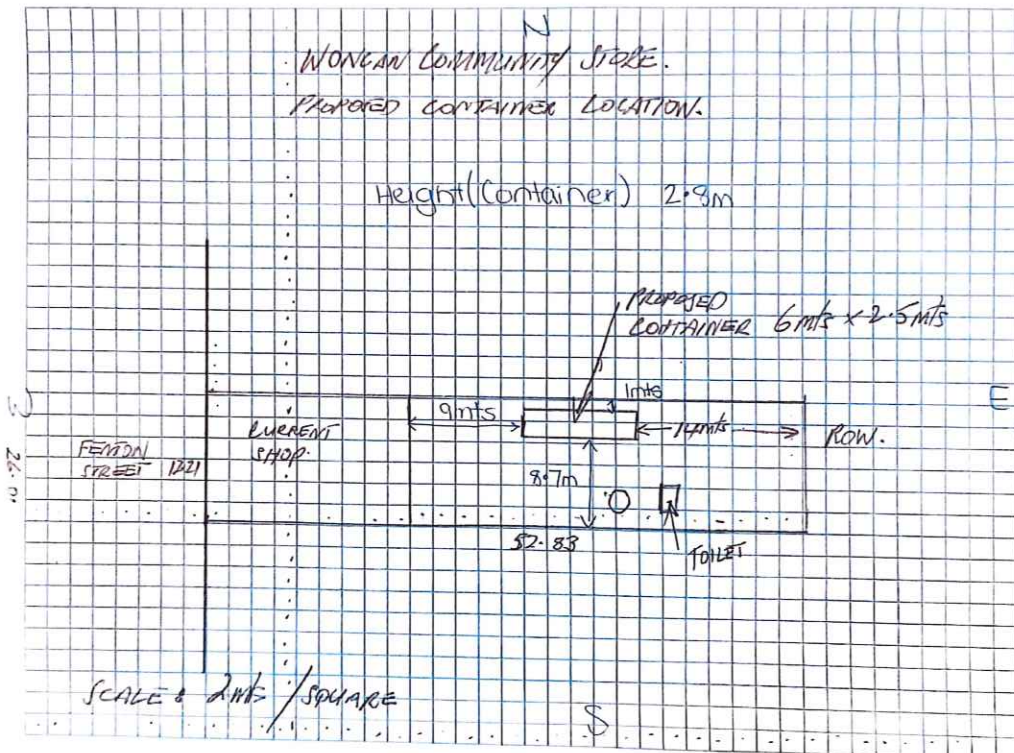 N
WONGAN COMMUNITY STORE.
PROPOSED CONTAINER LOCATION.
Height (Container) 2.8m
PROPOSED
CONTAINER 6mts x 2.5mts
1mts
E
9mts
14mts
ROW.
CURRENT
SHOP.
FENTON
STREET
W
8.7m
52.83
TOILET
SCALE: 2mts / SQUARE
S